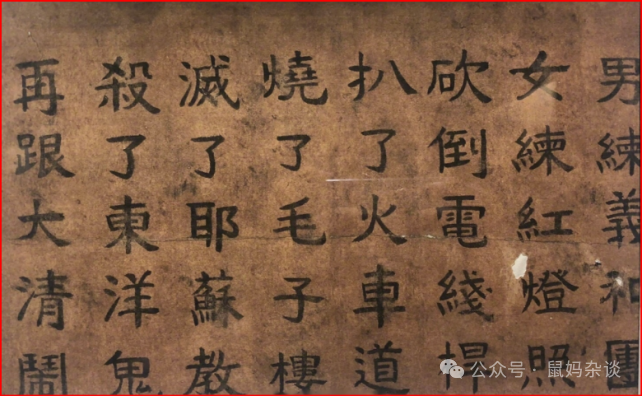 男練義和團
女練紅燈照
砍倒電綫桿
扒了火車道
燒了毛子樓
滅了耶蘇教
殺了東洋鬼
再跟大清鬧
公众号 · 鼠妈杂谈